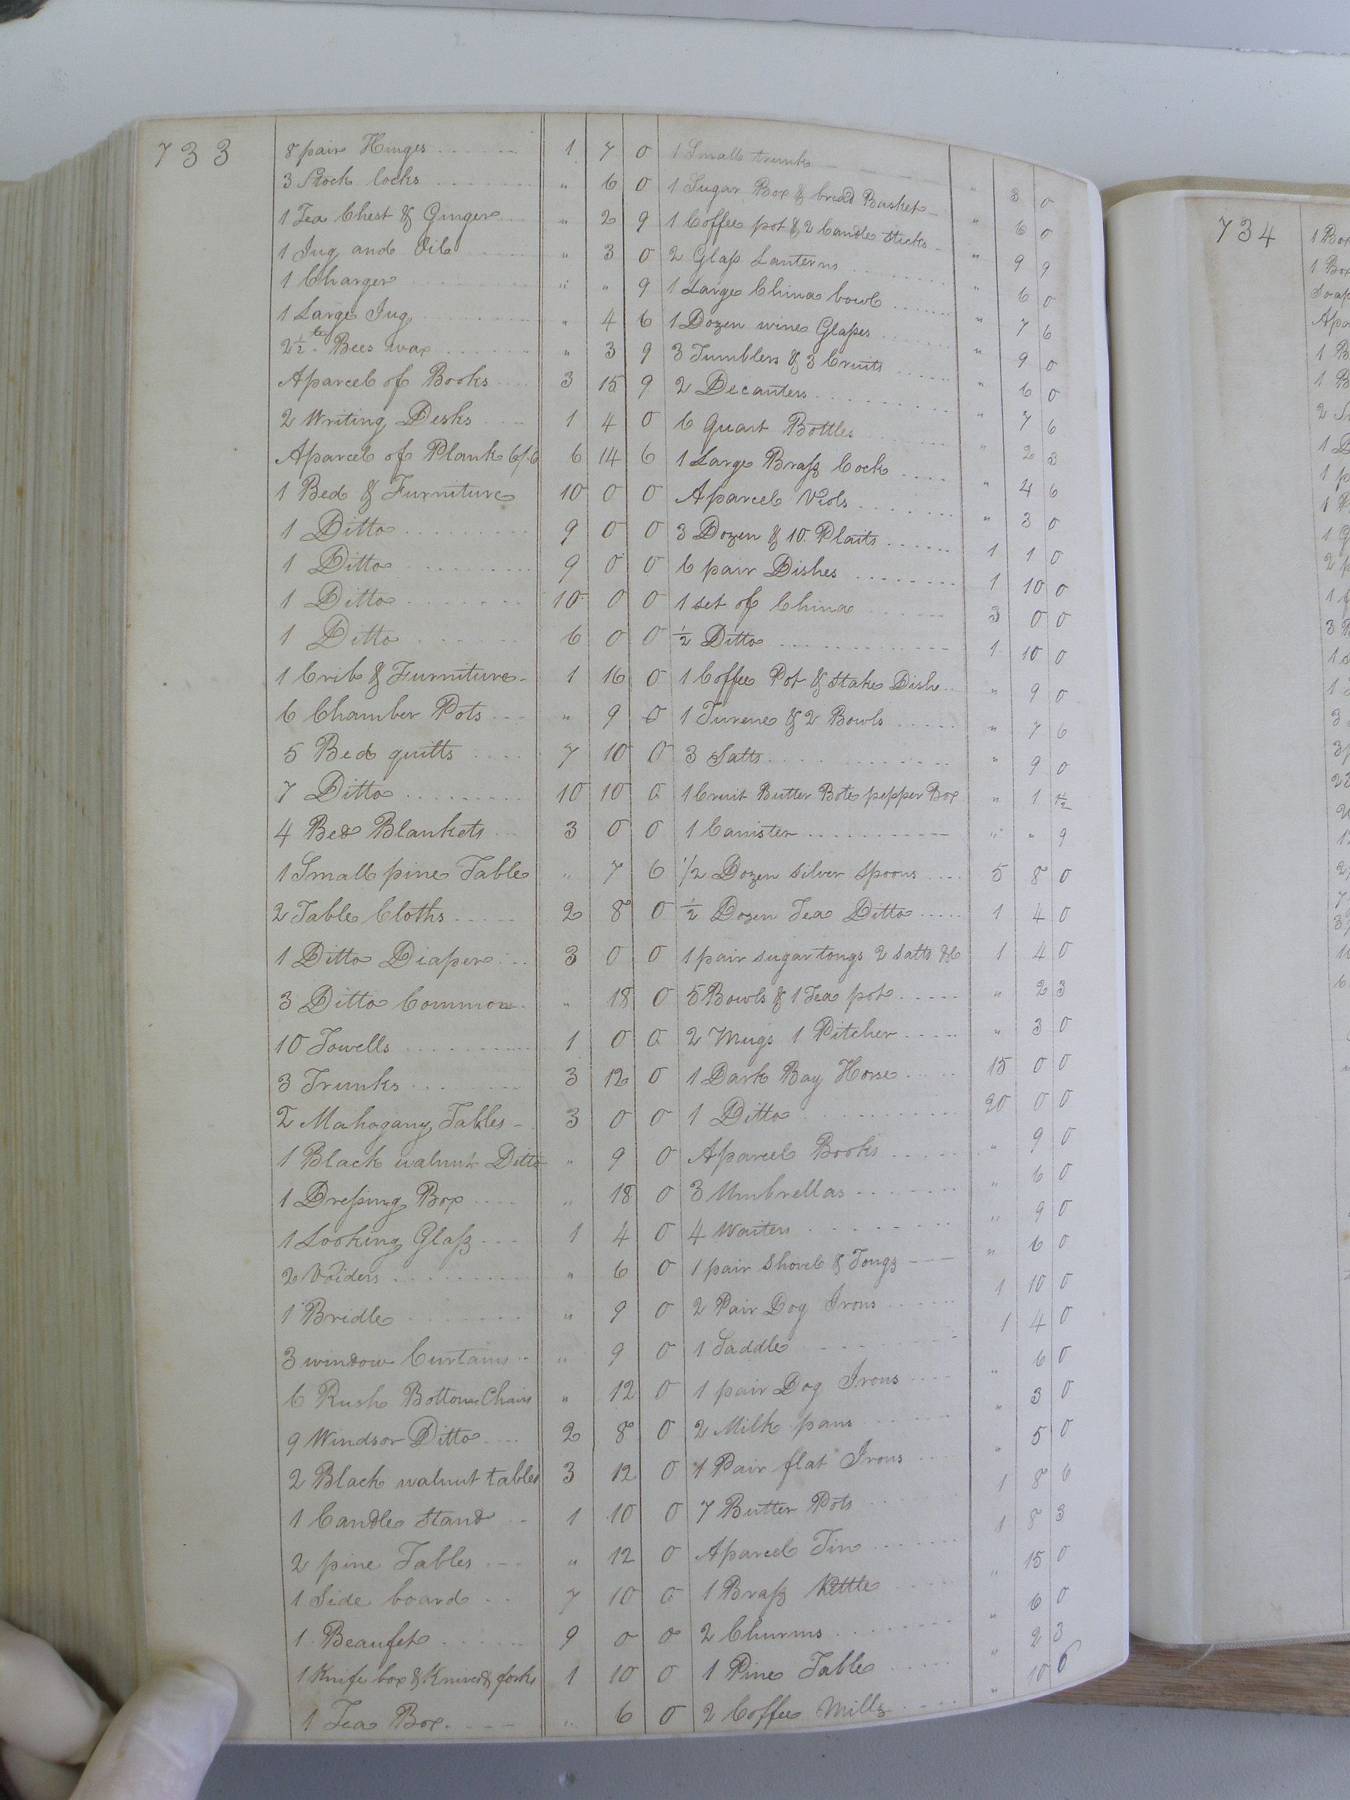 733
8 pair Hinges 1 7 0
3 Stock locks " 6 0
1 Tea Chest & Ginger " 2 9
1 Jug and Oil " 3 0
1 Charger " " 9
1 Large Jug " 4 6
2½ lb Bees wax " 3 9
A parcel of Books 3 15 9
2 Writing Desks 1 4 0
A parcel of Plank 6/6 6 14 6
1 Bed & Furniture 10 0 0
1 Ditto 9 0 0
1 Ditto 9 0 0
1 Ditto 10 0 0
1 Ditto 6 0 0
1 Crib & Furniture 1 16 0
6 Chamber Pots " 9 0
5 Bed quilts 7 10 0
7 Ditto 10 10 0
4 Bed Blankets 3 0 0
1 Small pine Table " 7 6
2 Table Cloths 2 8 0
1 Ditto Diaper 3 0 0
3 Ditto Common " 18 0
10 Towells 1 0 0
3 Trunks 3 12 0
2 Mahogany Tables 3 0 0
1 Black walnut Ditto " 9 0
1 Dressing Box " 18 0
1 Looking Glass 1 4 0
2 Voiders " 6 0
1 Bridle " 9 0
3 window Curtains " 9 0
6 Rush Bottom Chairs " 12 0
9 Windsor Ditto 2 8 0
2 Black walnut tables 3 12 0
1 Candle Stand 1 10 0
2 pine Tables " 12 0
1 Side board 7 10 0
1 Beaufet 9 0 0
1 Knife box & Knives & forks 1 10 0
1 Tea Box " 6 0
1 Small trunk " 3 0
1 Sugar Box & bread Basket " 6 0
1 Coffee pot & 2 Candle Sticks " 9 9
2 Glass Lanterns " 6 0
1 Large China bowl " 7 6
1 Dozen wine Glasses " 9 0
3 Tumblers & 3 Cruits " 6 0
2 Decanters " 7 6
6 Quart Bottles " 2 3
1 Large Brass Cock " 4 6
A parcel Viols " 3 0
3 Dozen & 10 Plaits 1 1 0
6 pair Dishes 1 10 0
1 set of China 3 0 0
½ Ditto 1 10 0
1 Coffee Pot & Stake Dishe " 9 0
1 Turene & 2 Bowls " 7 6
3 Salts " 9 0
1 Cruit Butter Bote pepper Box " 1 1½
1 Canister " " 9
1/2 Dozen silver Spoons 5 8 0
½ Dozen Tea Ditto 1 4 0
1 pair sugar tongs 2 salts &c 1 4 0
5 Bowls & 1 Tea pot " 2 3
2 Mugs 1 Pitcher " 3 0
1 Dark Bay Horse 15 0 0
1 Ditto 20 0 0
A parcel Books " 9 0
3 Umbrellas " 6 0
4 Waiters " 9 0
1 pair Shovel & Tongs " 6 0
2 Pair Dog Irons 1 10 0
1 Saddle 1 4 0
1 pair Dog Irons " 6 0
2 Milk pans " 3 0
1 Pair flat Irons " 5 0
7 Butter Pots 1 8 6
A parcel Tin 1 8 3
1 Brass Kettle " 15 0
2 Churns " 6 0
1 Pine Table " 2 3
2 Coffee Mills " 10 6
734
1 Box
1 Box